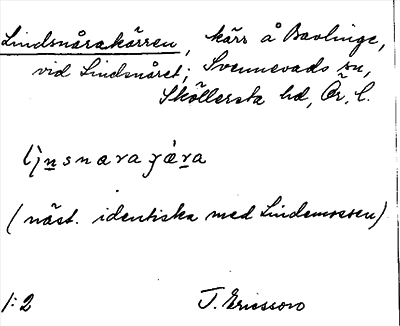 Lindsnårakärren, kärr å Bavlinge,
vid Lindsnåret; Svennevads sn,
Sköllersta hd, Ör. l.
(näst. identiska med Lindemossen)
1:2 J. Ericsson